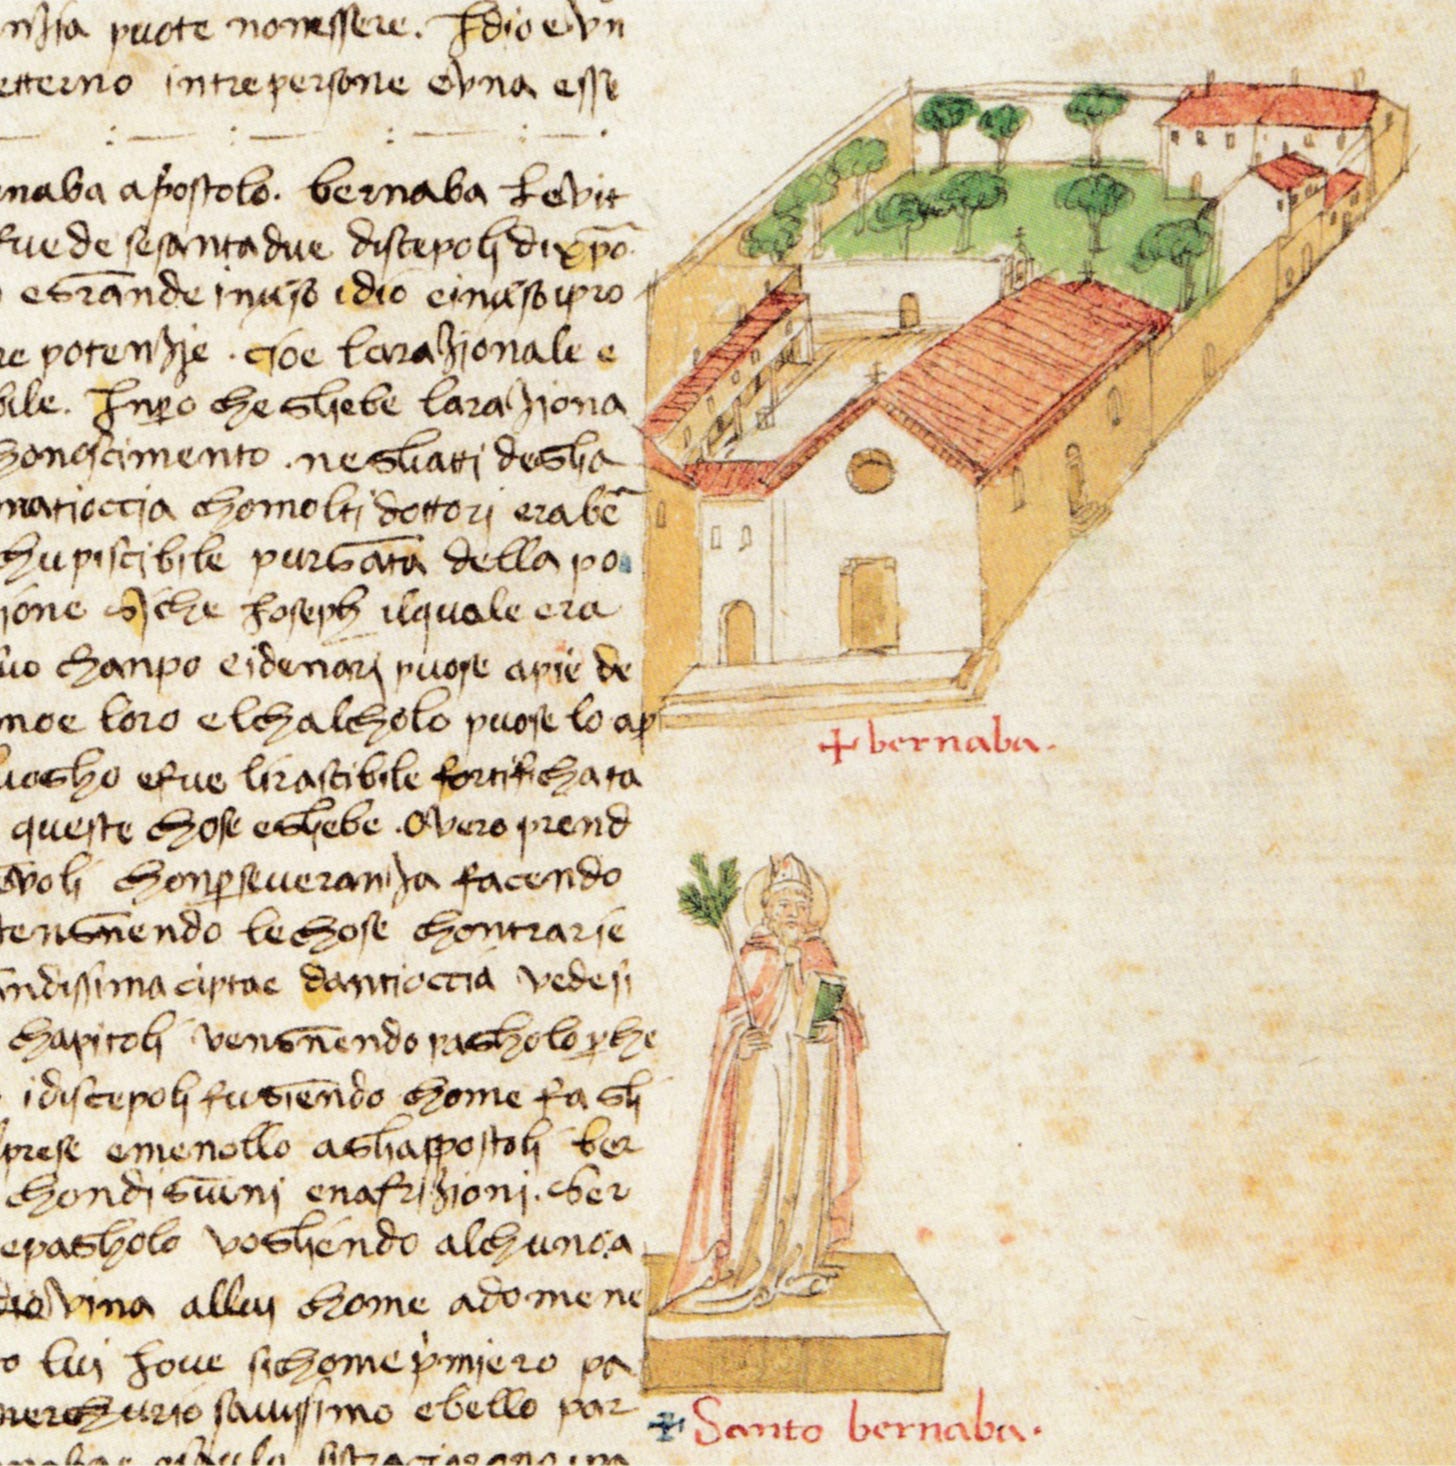 puote nonessere. Idio e vn
etterno intrepersone e vna esse
naba apostolo. bernaba Levit
fue de sesantadue discepoli di xpō
e grande inverso idio e inverso ipro
re potenzie . cioe la razionale e
bile. Inpero che gliebe la raziona
honoscimento . negliatti deglia
matioccia chomolti dottori erabē
chupiscibile purgata della po
zione siche Joseph ilquale era
suo chanpo e idenari puose apie de
moe loro elchalcholo puose lo ap
luogho e fue lirascibile fortifichata
queste chose eghebe . Overo prend
evoli chonperseveranza facendo
lechose chontrarie
andissima ciptae dantioccia vedesi
chapitoli vengnendo pagholo perche
idiscepoli fugiendo chome fa gli
prese e menollo agliappostoli ber
chondigiuni enafrizioni. ber
e pagholo vogliendo alchuno a
divina allui chome adomene
o lui Jove sichome primiero pa
merchurio savissimo e bello par
✝ bernaba.
✝ Santo bernaba.